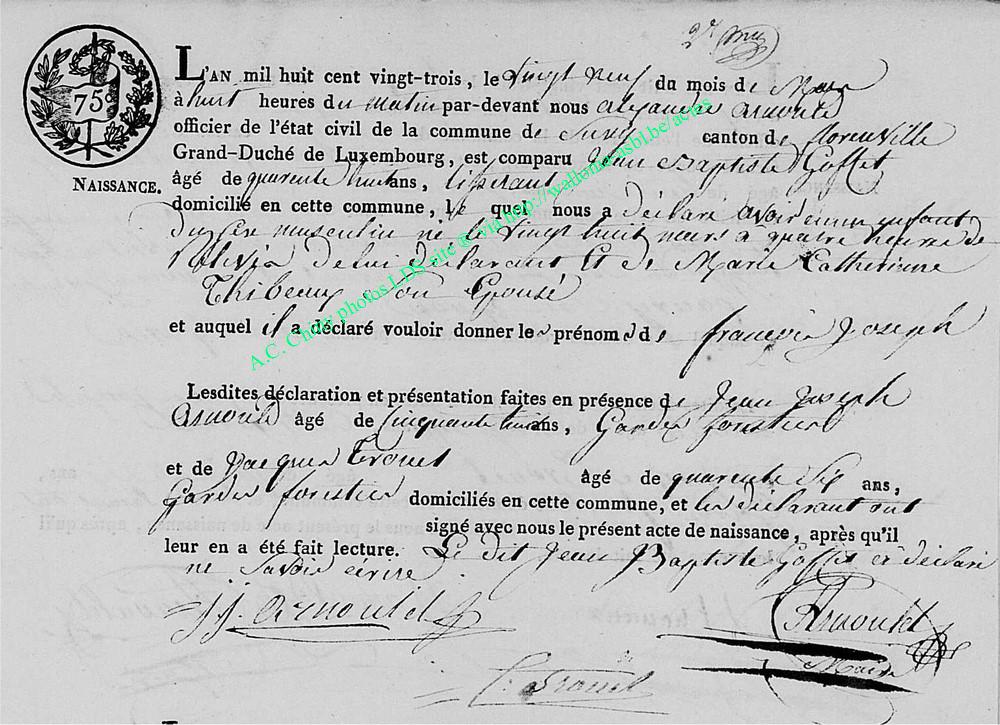 75
NAISSANCE.
L'AN mil huit cent vingt-trois, le vingt neuf du mois de Mars
à huit heures du matin par-devant nous alexandre arnould
officier de l'état civil de la commune de Suxy canton de florenville
Grand-Duché de Luxembourg, est comparu Jean Baptiste Goffet
âgé de quarente huit ans,
domicilié en cette commune, le quel nous a déclaré avoir eu un enfant
du sexe masculin né le vingt huit mars à quatre heures de
de lui déclarant et de Marie Catherinne
Thibeaux son Epouse
et auquel il a déclaré vouloir donner les prénoms de françois Joseph
Lesdites déclaration et présentation faites en présence de Jean Joseph
Arnould âgé de Cinquante ans, Garde forestier
et de Jacques âgé de quarente Six ans,
Garde forestier domiciliés en cette commune, et les déclarant ont
signé avec nous le présent acte de naissance, après qu'il
leur en a été fait lecture. Le dit Jean Baptiste Goffet a déclaré
ne Savoir écrire
J J Arnould
Arnould
Maire
A.C. Chiny photos LDS site @ via http://wallonia.asbl.be/actes